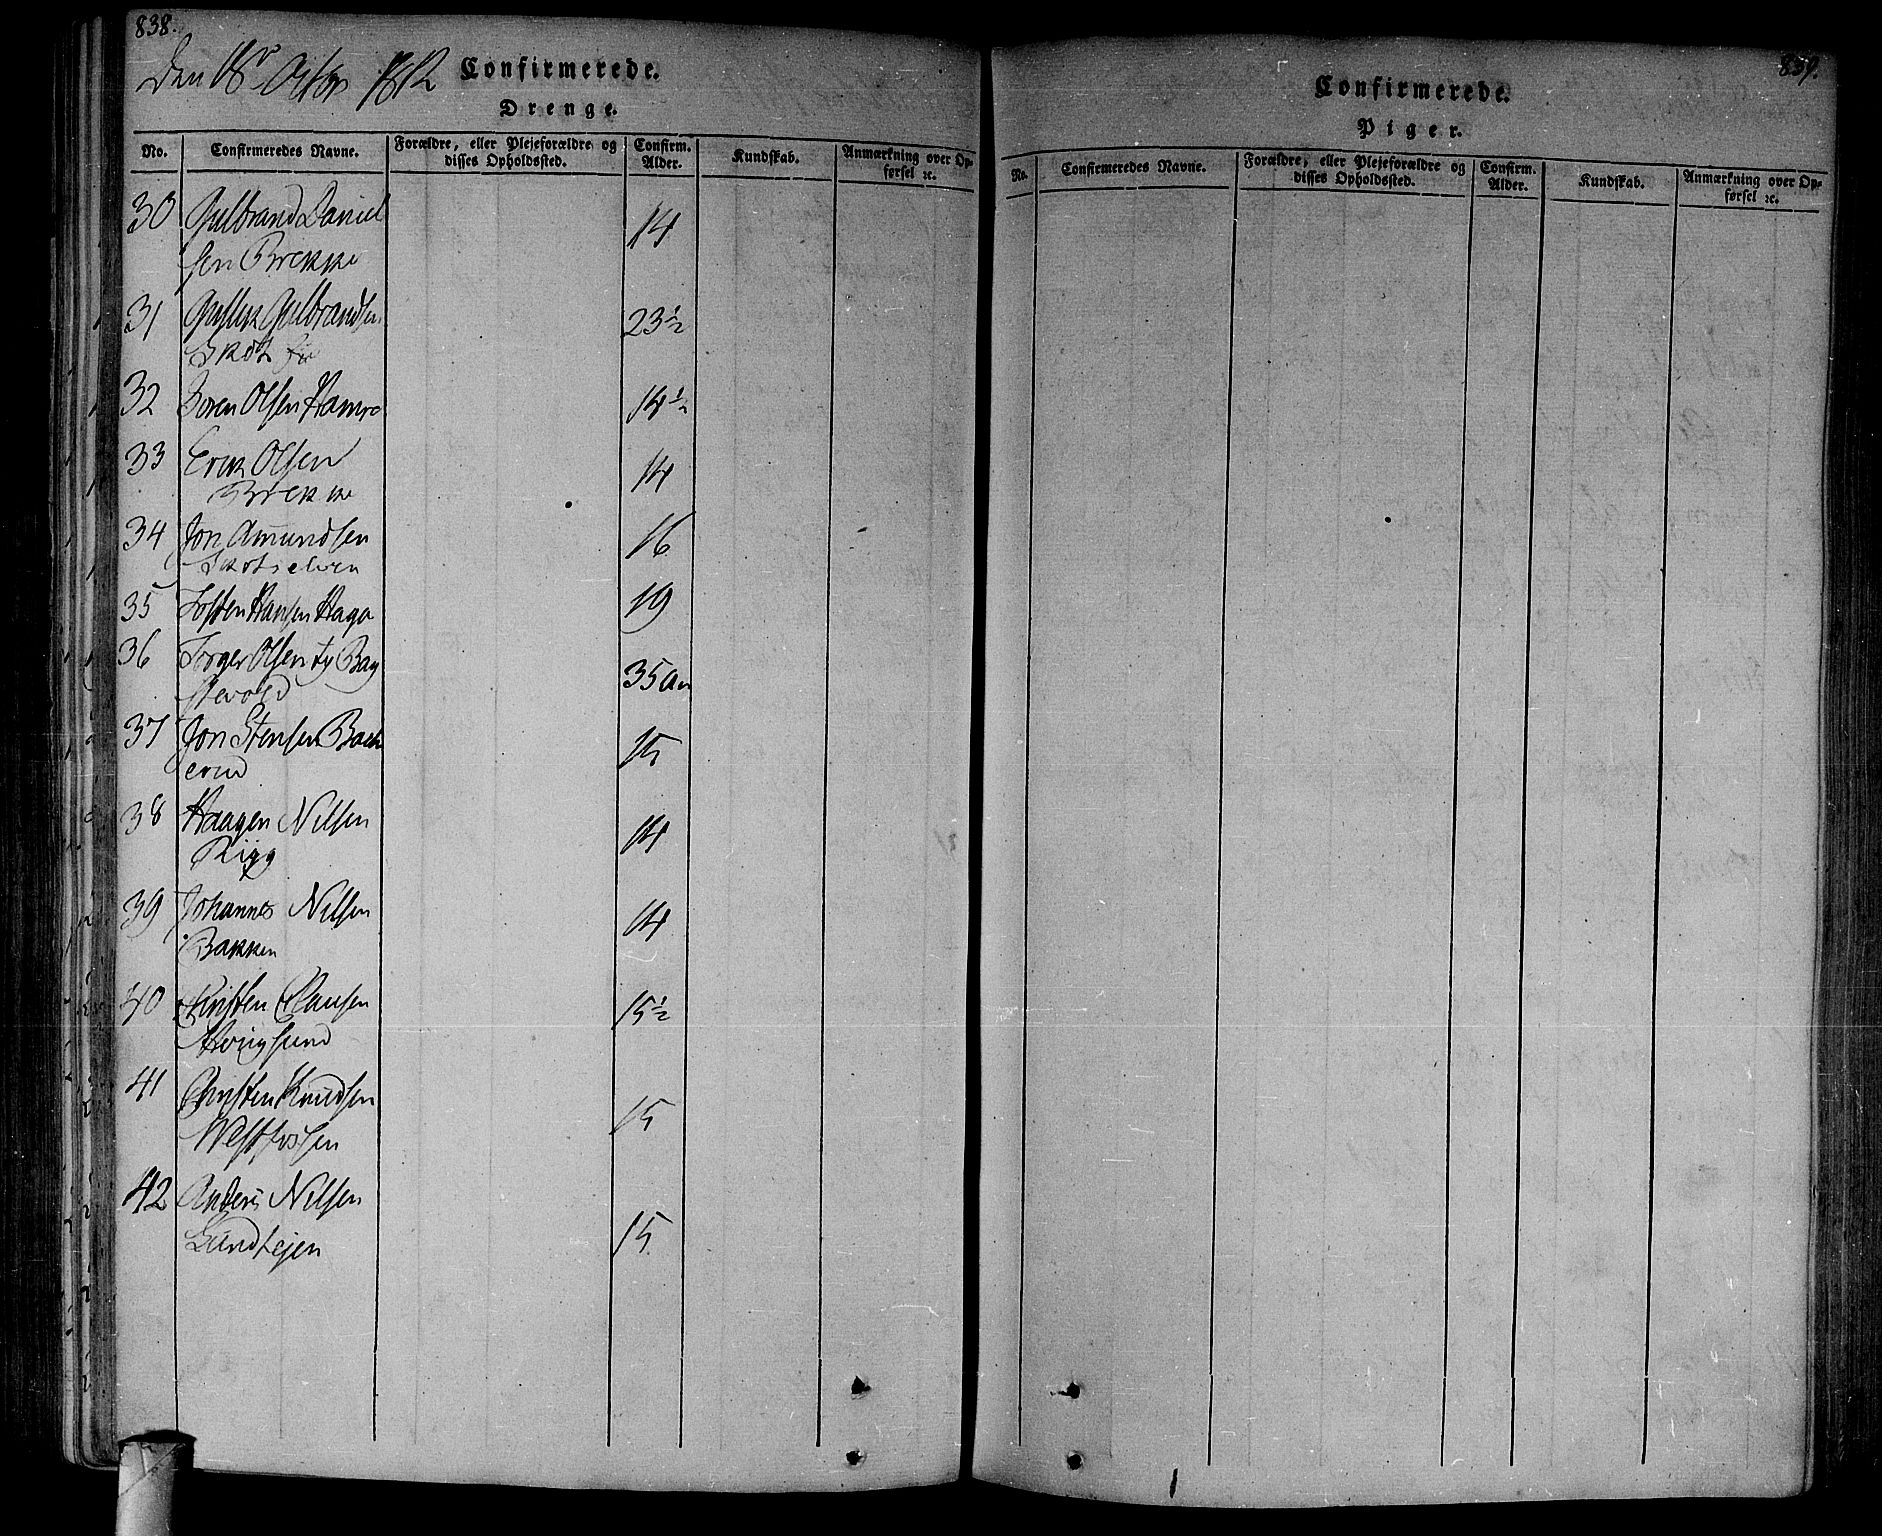 838.
Den 18de Octbr 1812
Confirmerede.
Drenge.
No. Confirmeredes Navne. Forældre, eller Plejeforældre og disses Opholdssted. Confirm. Alder. Kundskab. Anmærkning over Opførsel ꝛc.
30 Gulbrand Daniel 14
sen Brekke
31 Gullik Gulbrandsen 23½
32 Soren Olsen Hamre 14½
33 Erik Olsen 14
Brekke
34 Jon Amundsen 16
Skotselven
35 Tosten Hansen Haga 19
36 Torger Olsen 35 an
37 Jon Stensen Back 15
erud
38 Haagen Nilsen 14
Rigg
39 Johannes Nilsen 14
Bakken
40 Kristen Clausen 15½
41 Christen Knudsen 15
Westfossen
42 Anders Nilsen 15
839.
Confirmerede.
Piger.
No. Confirmeredes Navne. Forældre, eller Plejeforældre og disses Opholdssted. Confirm. Alder. Kundskab. Anmærkning over Opførsel ꝛc.